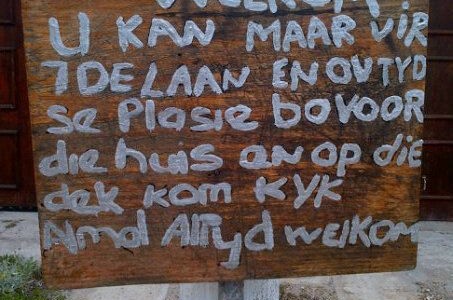 U KAN MAAR VIR
7DE LAAN EN OUTYD
se Plasie bo voor
die huis an op die
dek kom KYK
Almal Altyd welkom